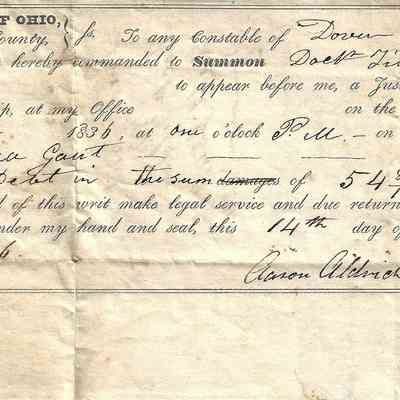 F OHIO,
County, } ss. To any Constable of Dover
hereby commanded to Summon Doct
to appear before me, a Jus
p, at my Office on the
1836, at one o'clock P.M. — on
Gant — — —
Debt in the sum damages of 54
d of this writ make legal service and due return
nder my hand and seal, this 14th day of
6. Aaron Aldrich